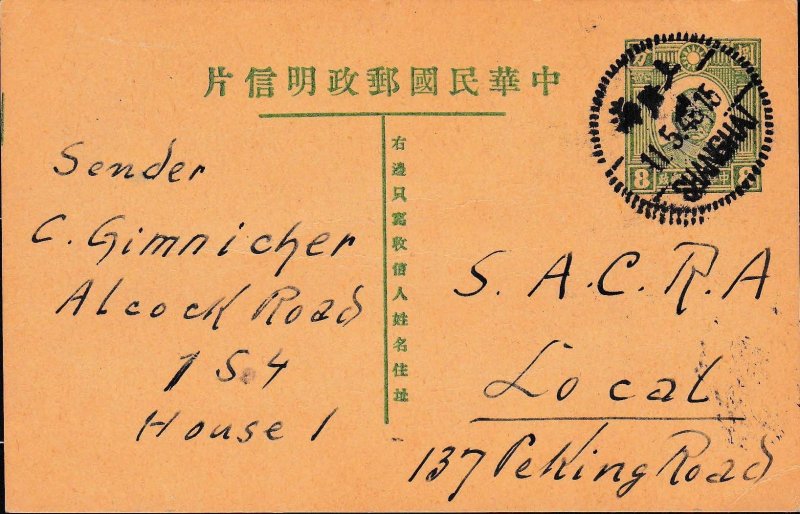 片信明政郵國民華中
右邊只寫收信人姓名住址
上海
11.5.
15
SHANGHAI
8
Sender
C. Gimnicher
Alcock Road
1 S. 4
House 1
S. A. C. R. A
Local
137 Peking Road